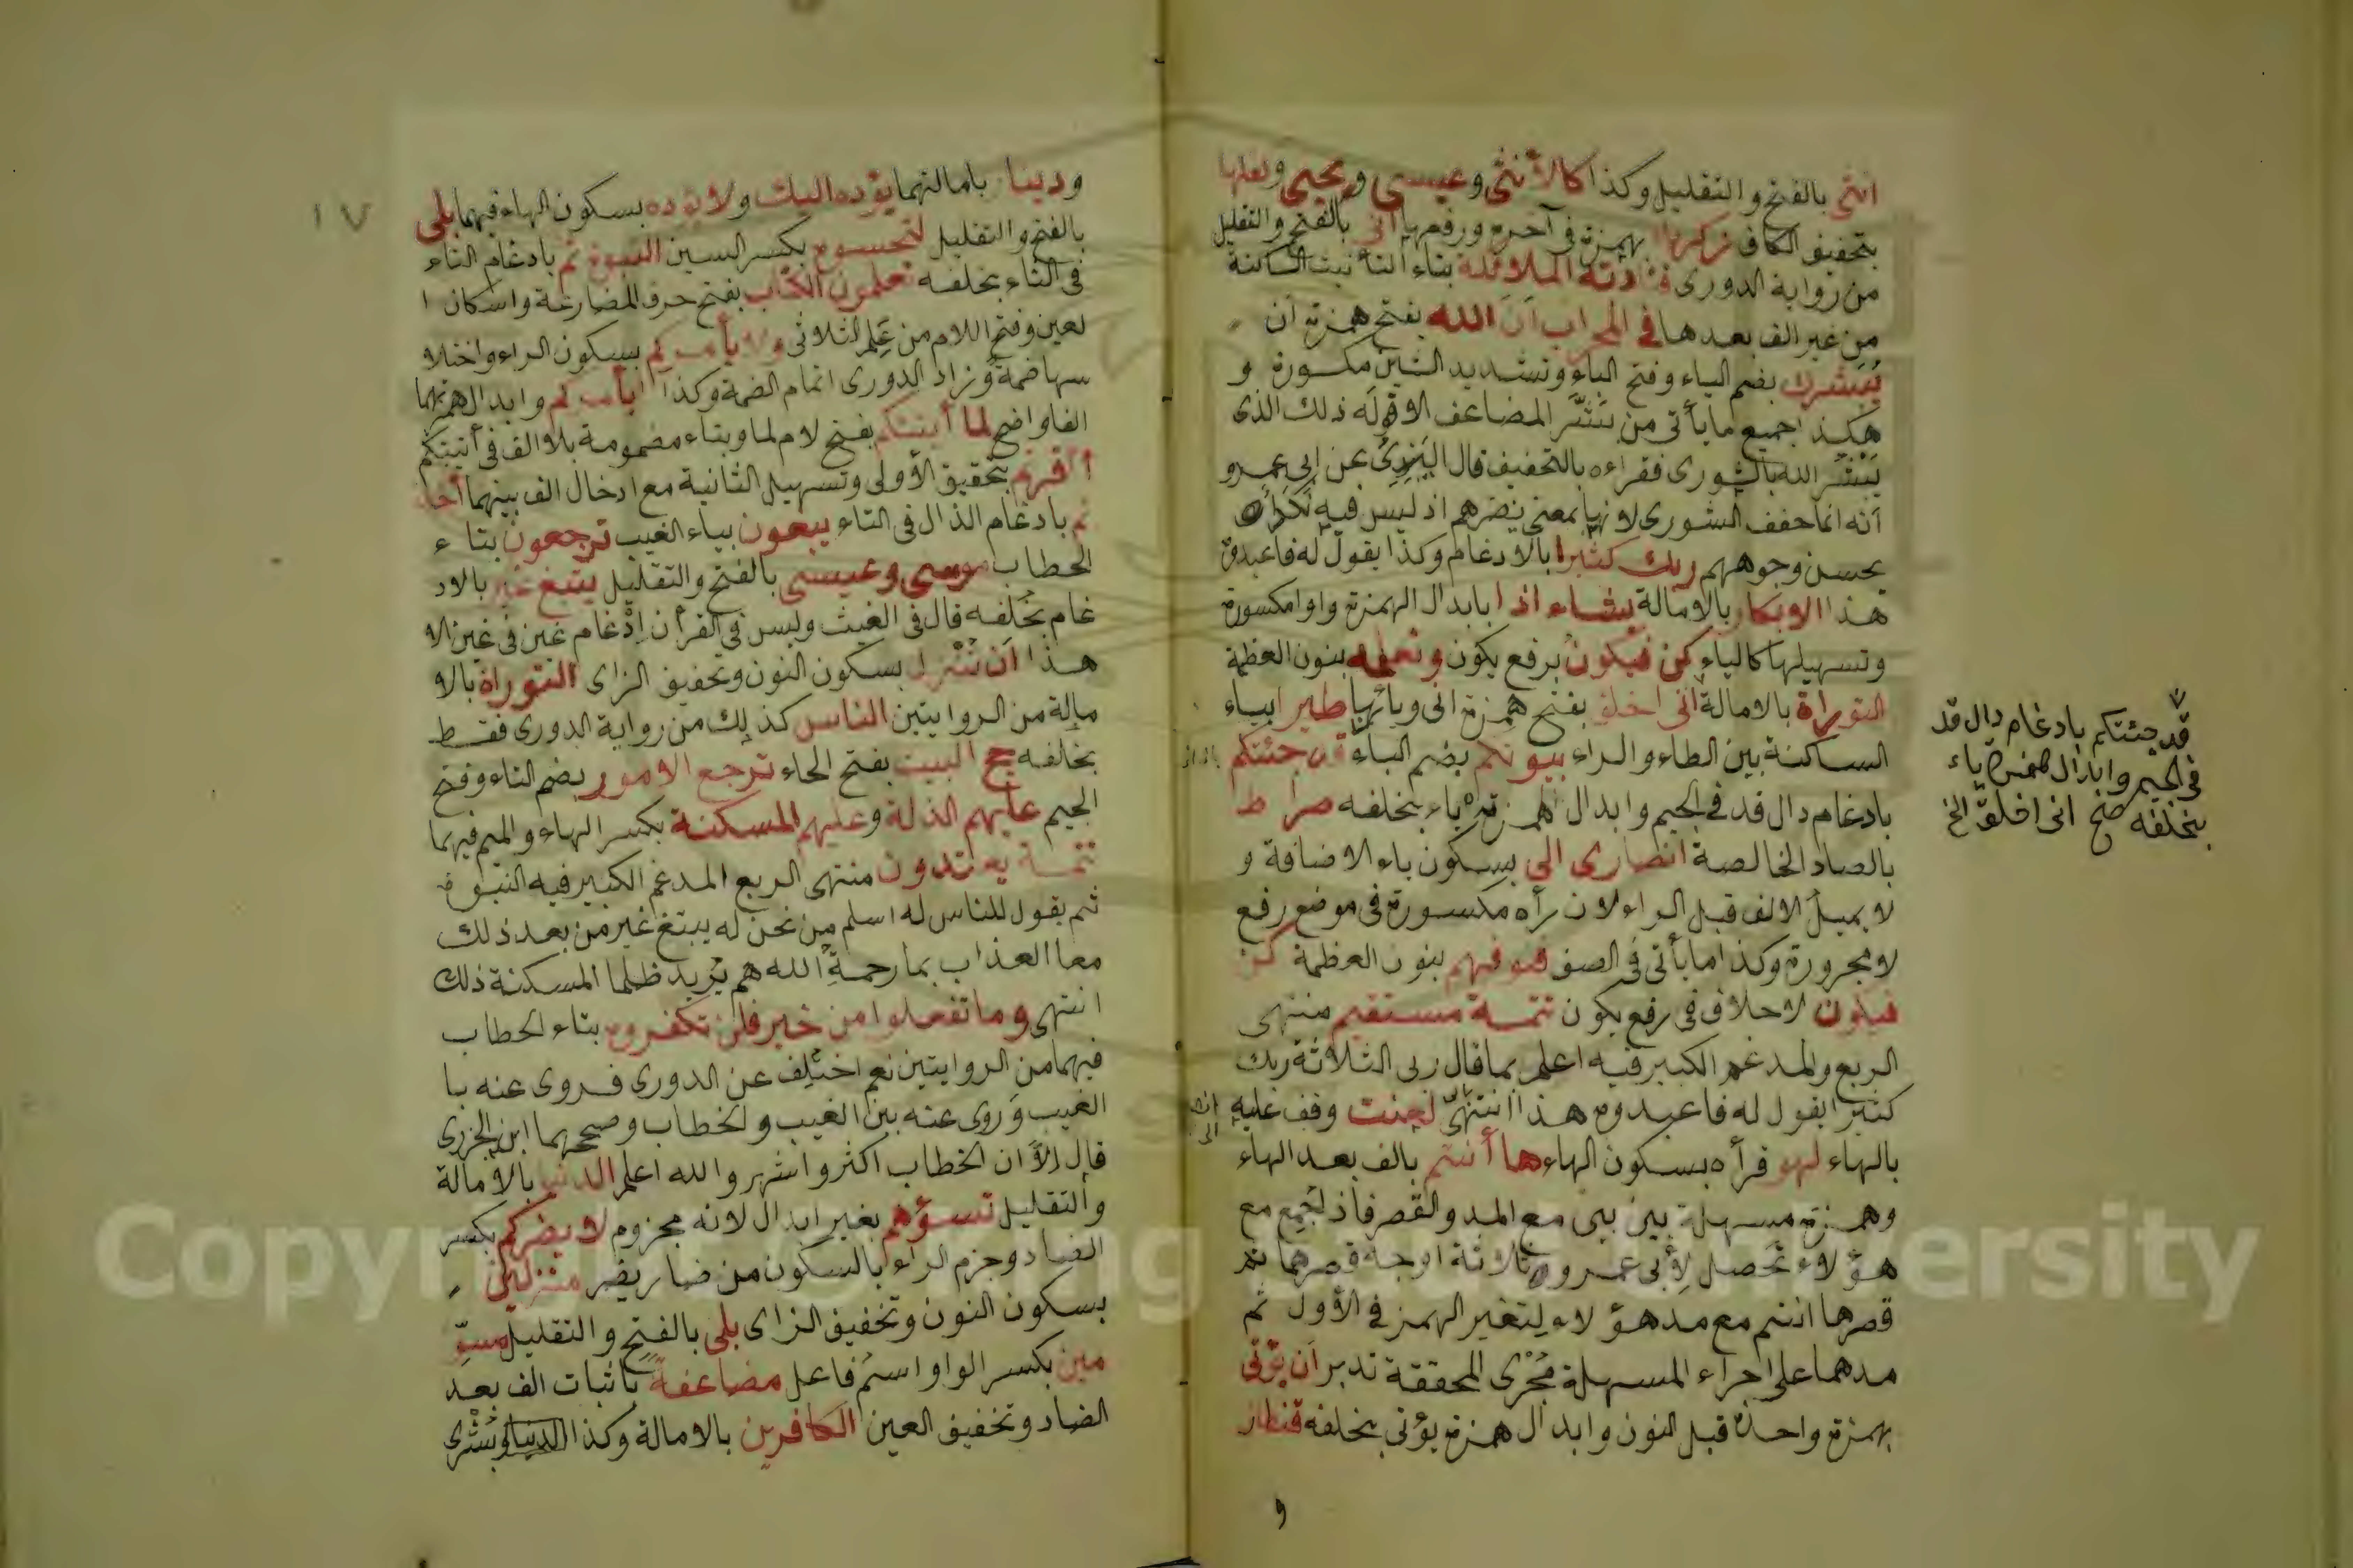 انثى بالفتح والتقليل وكذا كالأنثى وعيسى ويحيى وكفلها
بتخفيف الكاف زكرياء بهمزة في آخره ورفعها أنى بالفتح والتقليل
من رواية الدورى فنادته الملائكة بتاء التأنيث الساكنة
من غير الف بعدها في المحراب أن الله بفتح همزة أن
يُبَشِّرك بضم الياء وفتح الباء وتشديد الشين مكسورة و
هكذا جميع ما يأتى من يبشّر المضاعف الا قوله ذلك الذى
يبشر الله بالشورى فقراءه بالتخفيف قال اليَزِيدى عن ابى عمرو
أنه انما خفف الشورى لانها بمعنى ينضرهم اذ ليس فيه نكد أى
يحسن وجوههم ربك كثيرا بالادغام وكذا يقول له فاعبدوه
هذا الابكار بالامالة يشاء اذا بابدال الهمزة واوا مكسورة
وتسهيلها كالياء كن فيكون برفع يكون ونعلمه بنون العظمة
التوراة بالامالة أنى اخلق بفتح همزة انى ويائها طيرا بياء
الساكنة بين الطاء والراء بيوتكم بضم الباء قد جئتكم
بادغام دال قد في الجيم وابدال الهمزة ياء بخلفه صراط
بالصاد الخالصة انصارى الى بسكون ياء الاضافة و
لا يميل الالف قبل الراء لان رأه مكسورة في موضع رفع
لا مجرورة وكذا ما يأتى في الصف فنوفيهم بنون العظمة كن
فيكون لا خلاف في رفع يكون تتمـة مستقيم منتهى
الربع والمدغم الكبير فيه اعلم بما قال ربى الثلاثة ربك
كثيرا يقول له فاعبدوه هذا انتهى لعنت وقف عليه
بالهاء لهو قرأه بسكون الهاء ها أنتم بالف بعد الهاء
وهمزة مسهلة بين بين مع المد والقصر فاذ اجمع مع
هؤلاء تحصل لأبى عمرو ثلاثة اوجه قصرهما ثم
قصرها انتم مع مد هؤلاء لتغير الهمز في الأول ثم
مدهما على اجراء المسهلة مجرى المحققة تدبر أن يؤتى
بهمزة واحدة قبل النون وابدال همزة يؤتى بخلفه قنطار
و
قد جئتكم بادغام دال قد
في الجيم وابدال همزه ياء
بخلفه صح انى اخلق الخ
١٧
ودينار بامالتهما يؤده اليك ولا يؤده بسكون الهاء فيهما بلى
بالفتح والتقليل لتحسبوه بكسر السين النبوة ثم بادغام التاء
في الثاء بخلفه تعلمون الكتاب بفتح حرف المضارعة واسكان ا
لعين وفتح اللام من عَلِم الثلاثى ولا يأمركم بسكون الراء واختلا
سها ضمة وزاد الدورى اتمام الضمة وكذا أيأمركم وابدال همزتهما
الفا واضح لما آتيتكم بفتح لام لما وبتاء مضمومة بلا الف في آتيتكم
أأقررتم بتحقيق الأولى وتسهيل الثانية مع ادخال الف بينهما أخذ
تم بادغام الذال في التاء يبغون بياء الغيب ترجعون بتاء
الخطاب موسى وعيسى بالفتح والتقليل يبتغ غير بالاد
غام بخلفه قال في الغيث وليس في القرأن إدغام غين في غين الا
هذا أن تنزل بسكون النون وتخفيف الزاى التوراة بالا
مالة من الروايتين الناس كذلك من رواية الدورى فقط
بخلفه حج البيت بفتح الحاء ترجع الامور بضم التاء وفتح
الجيم عليهم الذلة وعليهم المسكنة بكسر الهاء والميم فيهما
تتمـة يعتدون منتهى الربع المدغم الكبير فيه النبوة
ثم يقول للناس له اسلم من نحن له يبتغ غير من بعد ذلك
معا العذاب بما رحمة الله هم يريد ظلما المسكنة ذلك
انتهى وما تفعلوا من خير فلن تكفروه بتاء الخطاب
فيهما من الروايتين نعم اختلف عن الدورى فروى عنه با
الغيب وروى عنه بين الغيب والخطاب وصححهما ابن الجزرى
قال الاّ ان الخطاب اكثر واشهر والله اعلم الدنيا بالامالة
والتقليل تسؤهم بغير ابدال لانه مجزوم لا يضركم بكسر
الضاد وجزم الراء بالسكون من ضار يضير منزلين
بسكون النون وتخفيف الزاى بلى بالفتح والتقليل مسوّ
مين بكسر الواو اسم فاعل مضاعفة باثبات الف بعد
الضاد وتخفيف العين الكافرين بالامالة وكذا الدنيا وبشرى